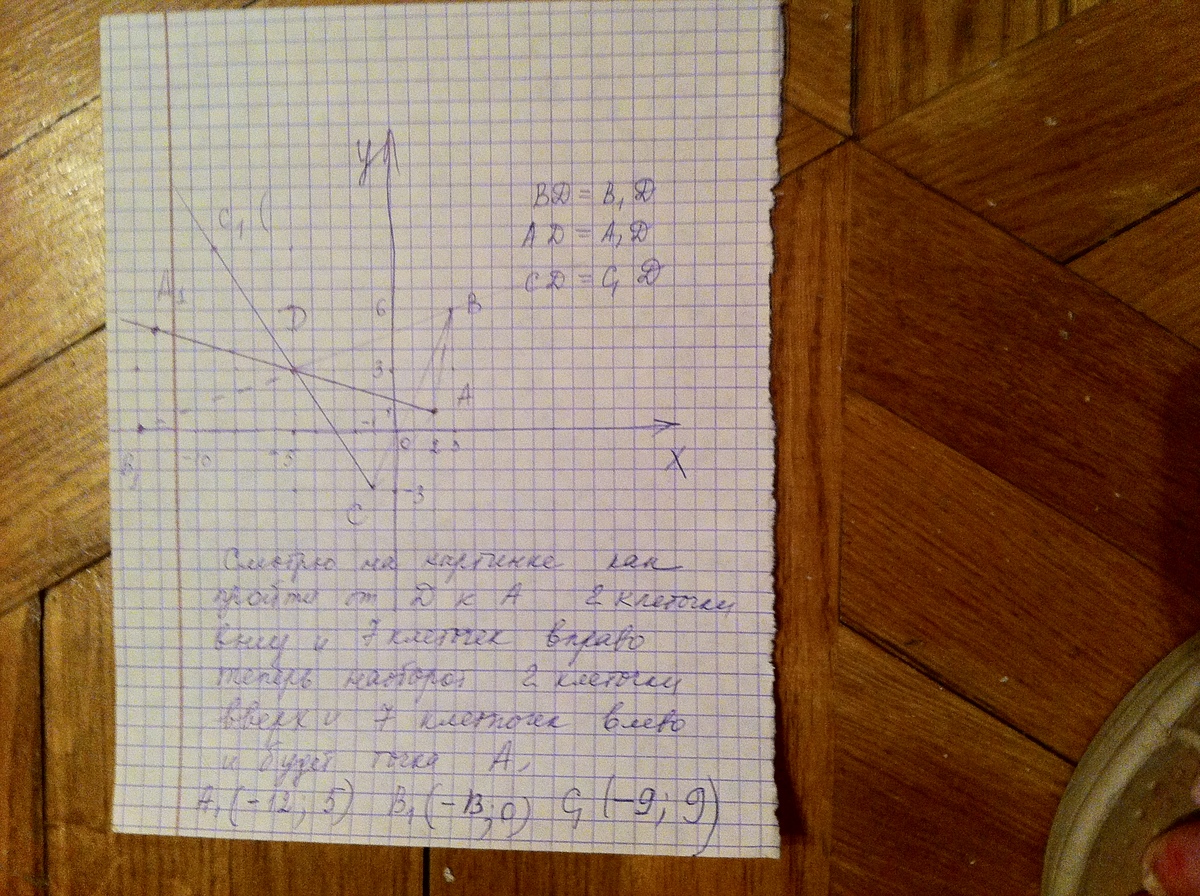 y
BD = B₁D
AD = A₁D
CD = C₁D
C₁ (
A₁
6
B
D
3
A
-1
0
2
3
B₁
-10
-5
X
-3
C
Смотрю на картинке как
пройти от D к A 2 клеточки
вниз и 7 клеточек вправо
теперь наоборот 2 клеточки
вверх и 7 клеточек влево
и будет точка A₁
A₁ (-12; 5) B₁ (-13; 0) C₁ (-9; 9)